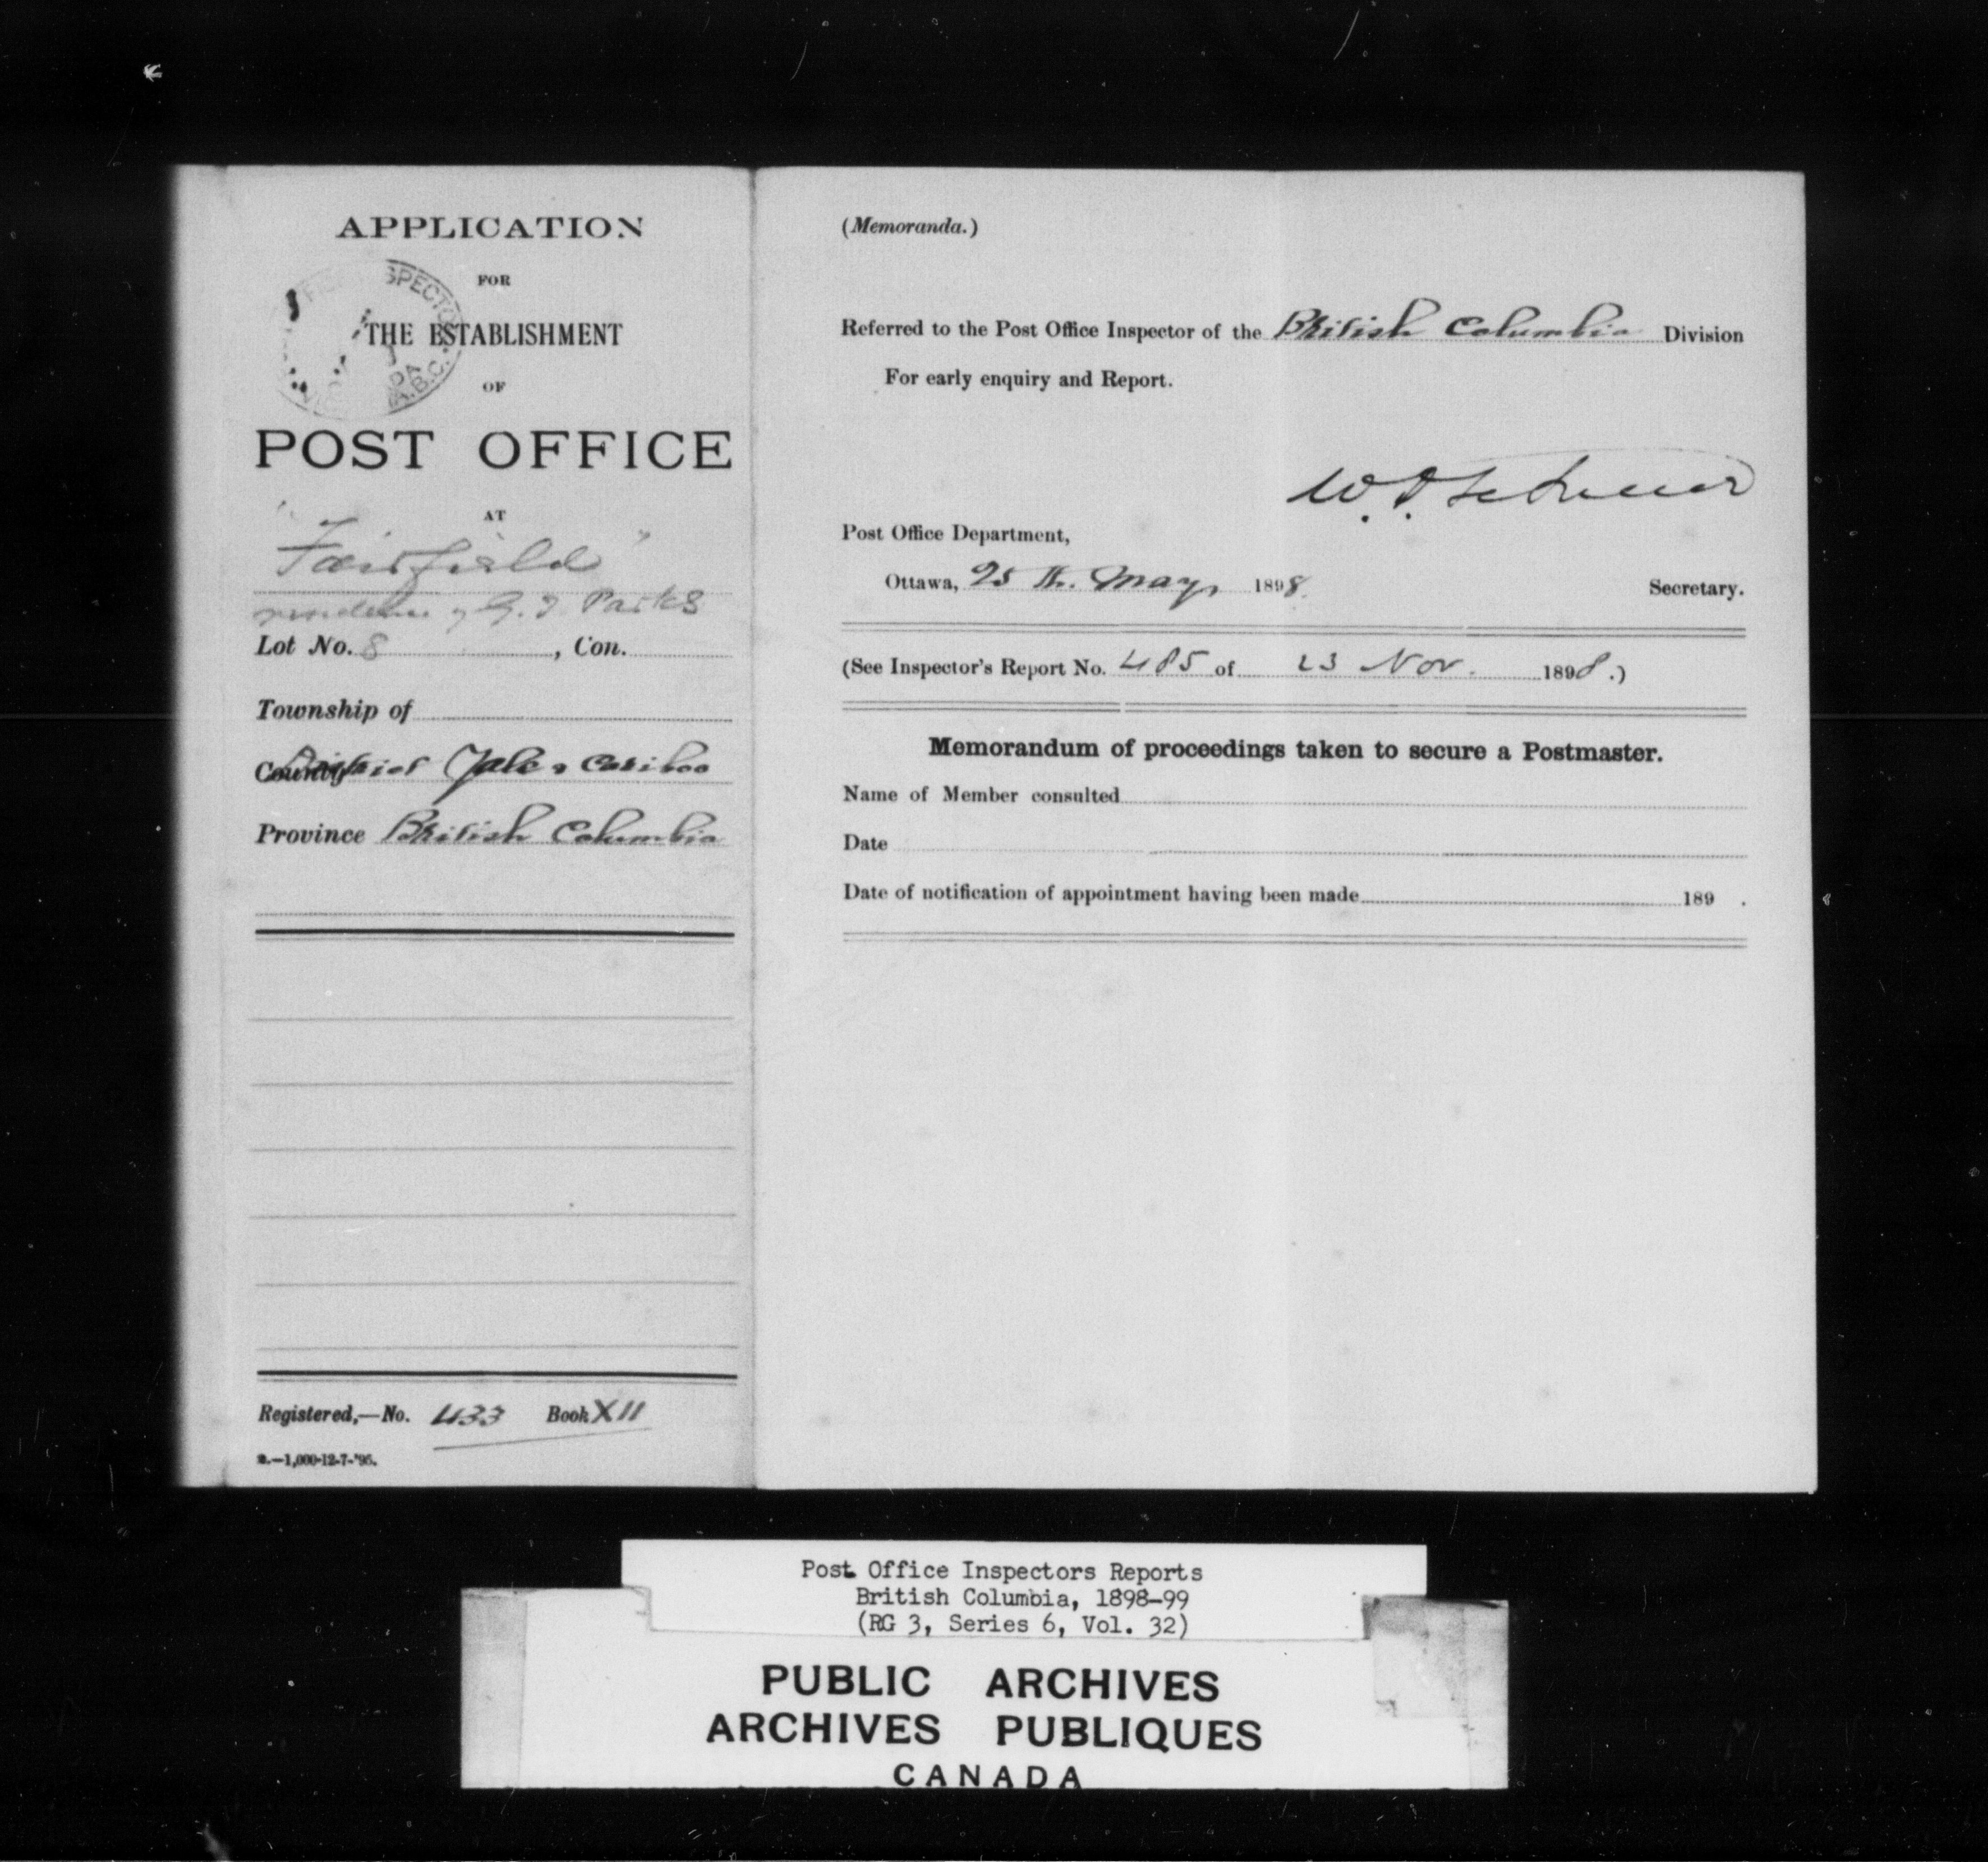 APPLICATION
FOR
THE ESTABLISHMENT
OF
POST OFFICE
AT
"Fairfield"
residence of G. T Parks
Lot No. 8, Con.
Township of
County District Yale & Cariboo
Province British Columbia
Registered,—No. 433 Book XII
2.—1,000-12-7-'95.
(Memoranda.)
Referred to the Post Office Inspector of the British Columbia Division
For early enquiry and Report.
Post Office Department,
Ottawa, 25 th. May, 1898.
Secretary.
(See Inspector's Report No. 485 of 23 Nov. 1898.)
Memorandum of proceedings taken to secure a Postmaster.
Name of Member consulted
Date
Date of notification of appointment having been made 189 .
Post Office Inspectors Reports
British Columbia, 1898-99
(RG 3, Series 6, Vol. 32)
PUBLIC ARCHIVES
ARCHIVES PUBLIQUES
CANADA